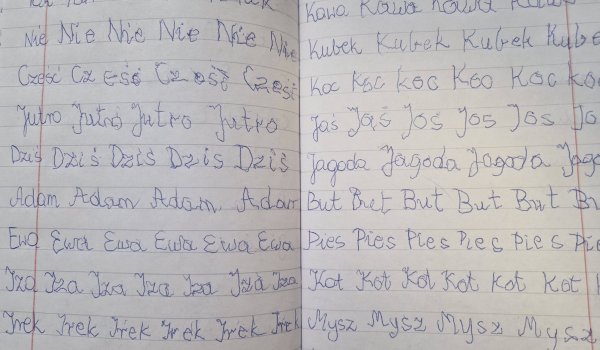 Nie Nie Nie Nie Nie Nie
Cześć Cz eść Cześć Cześć
Jutro Jutro Jutro Jutro
Dziś Dziś Dziś Dziś Dziś
Adam Adam Adam Adam
Ewa Ewa Ewa Ewa Ewa Ewa
Iza Iza Iza Iza Iza Iza Iza
Irek Irek Irek Irek Irek Irek
Kawa Kawa Kawa
Kubek Kubek Kubek Kube
Koc Koc Koc Koc Koc Ko
Jaś Jaś Joś Jos Jos Jo
Jagoda Jagoda Jagoda Jago
But But But But But Bu
Pies Pies Pies Pies Pies Pie
Kot Kot Kot Kot Kot Kot
Mysz Mysz Mysz Mysz